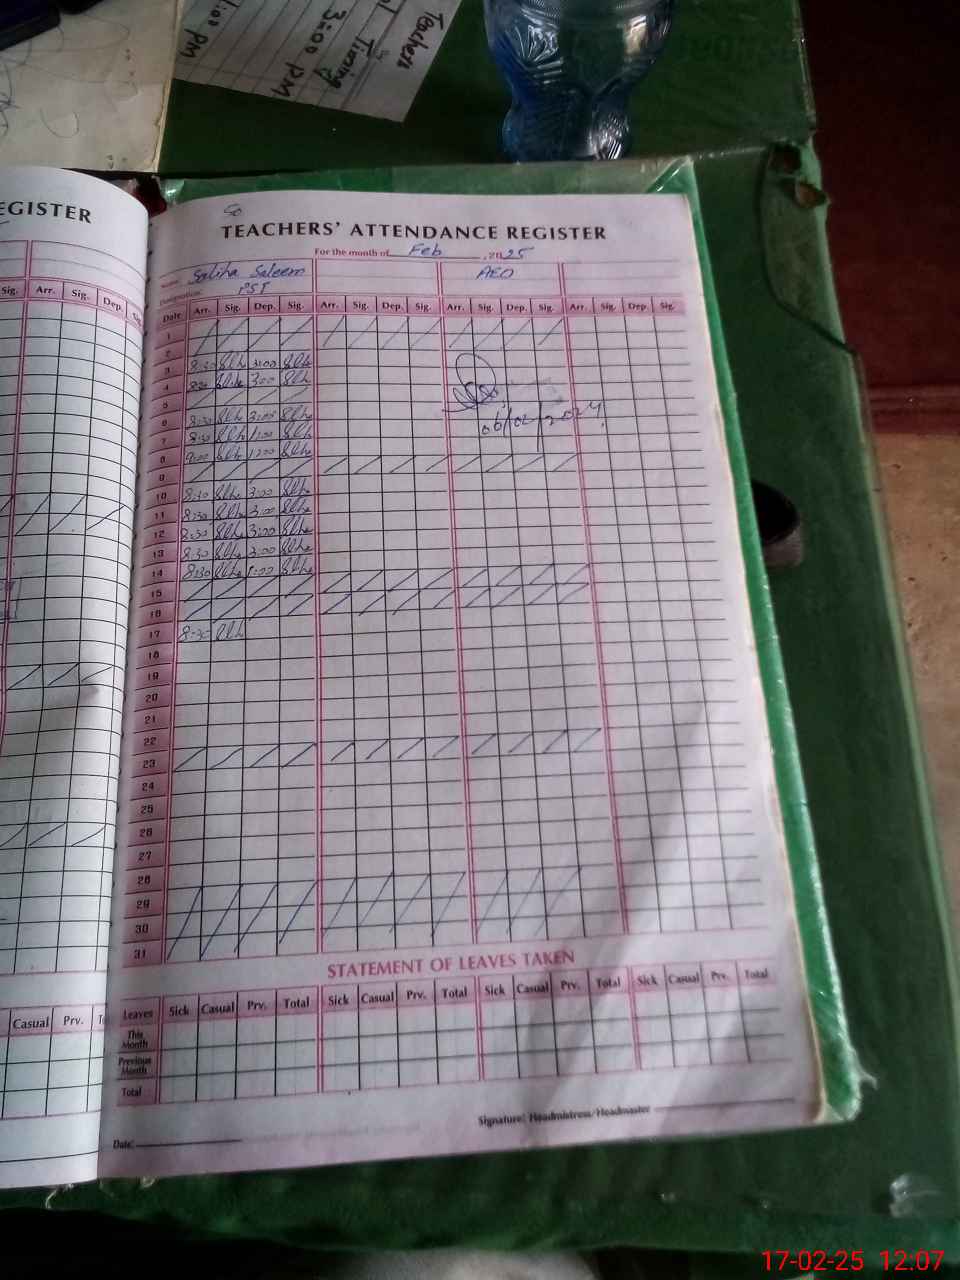 Teachers
Timing
3:00 PM
1:00 PM
EGISTER
50
TEACHERS' ATTENDANCE REGISTER
For the month of Feb , 20 25
Name Saliha Saleem AEO
Designation PST
Sig. Arr. Sig. Dep. Sig.
Date Arr. Sig. Dep. Sig. Arr. Sig. Dep. Sig. Arr. Sig. Dep. Sig. Arr. Sig. Dep. Sig.
1
2
3 8:30 3:00
4 8:30 3:00
5
6 8:30 3:00
7 8:30 1:00
8 9:00 1:00
9
10 8:30 3:00
11 8:30 3:00
12 8:30 3:00
13 8:30 3:00
14 8:30 1:00
15
16
17 8:30
18
19
20
21
22
23
24
25
26
27
28
29
30
31
06/02/2024
STATEMENT OF LEAVES TAKEN
Casual Prv.
Leaves Sick Casual Prv. Total Sick Casual Prv. Total Sick Casual Prv. Total Sick Casual Prv. Total
This Month
Previous Month
Total
Signature: Headmistress/Headmaster
Date:
17-02-25 12:07